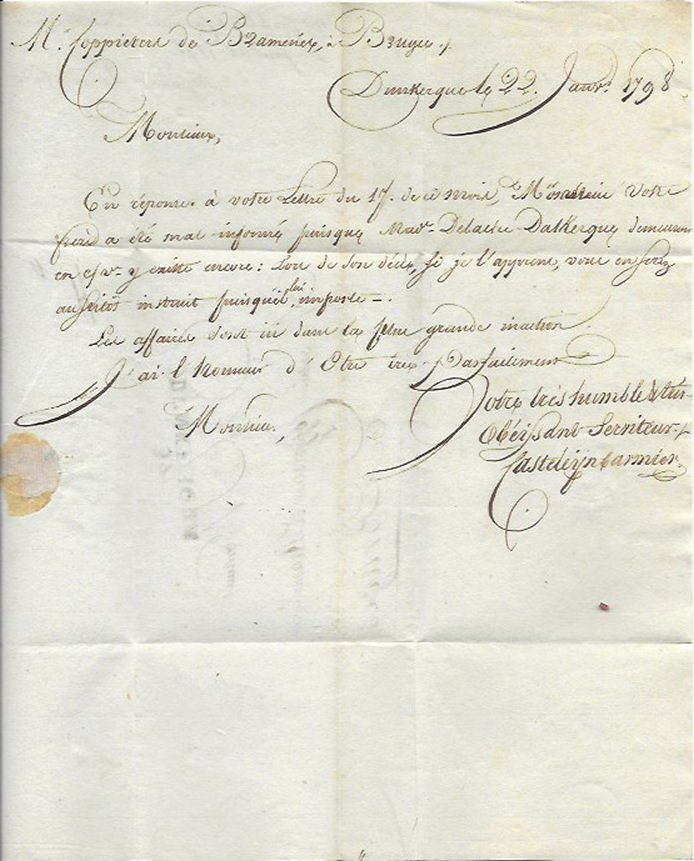 Mr. Coppieters de , à Bruges
Dunkerque le 22. Janvr. 1798
Monsieur,
En réponse à votre Lettre du 17. de ce mois, Monsieur votre
frère a été mal informé puisque Made. Dalkerque demeurant
en y existe encore: Lors de son décès, si je l'apprens, vous en serez
aussitôt instruit puisqu'il lui importe -.
Les affaires sont ici dans la plus grande inaction
J'ai l'honneur d'Être très parfaitement
Monsieur,
Votre très humble & très-
Obéissant Serviteur
Casteleijn Carmier